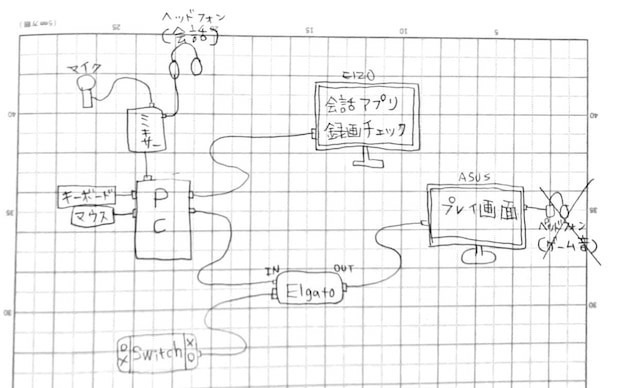 ヘッドフォン
(会話)
マイク
ミキサー
EIZO
会話アプリ
録画チェック
キーボード
マウス
PC
ASUS
プレイ画面
ヘッドフォン
(ゲーム音)
IN
OUT
Elgato
Switch
25
15
10
5
40
35
30
40
35
30